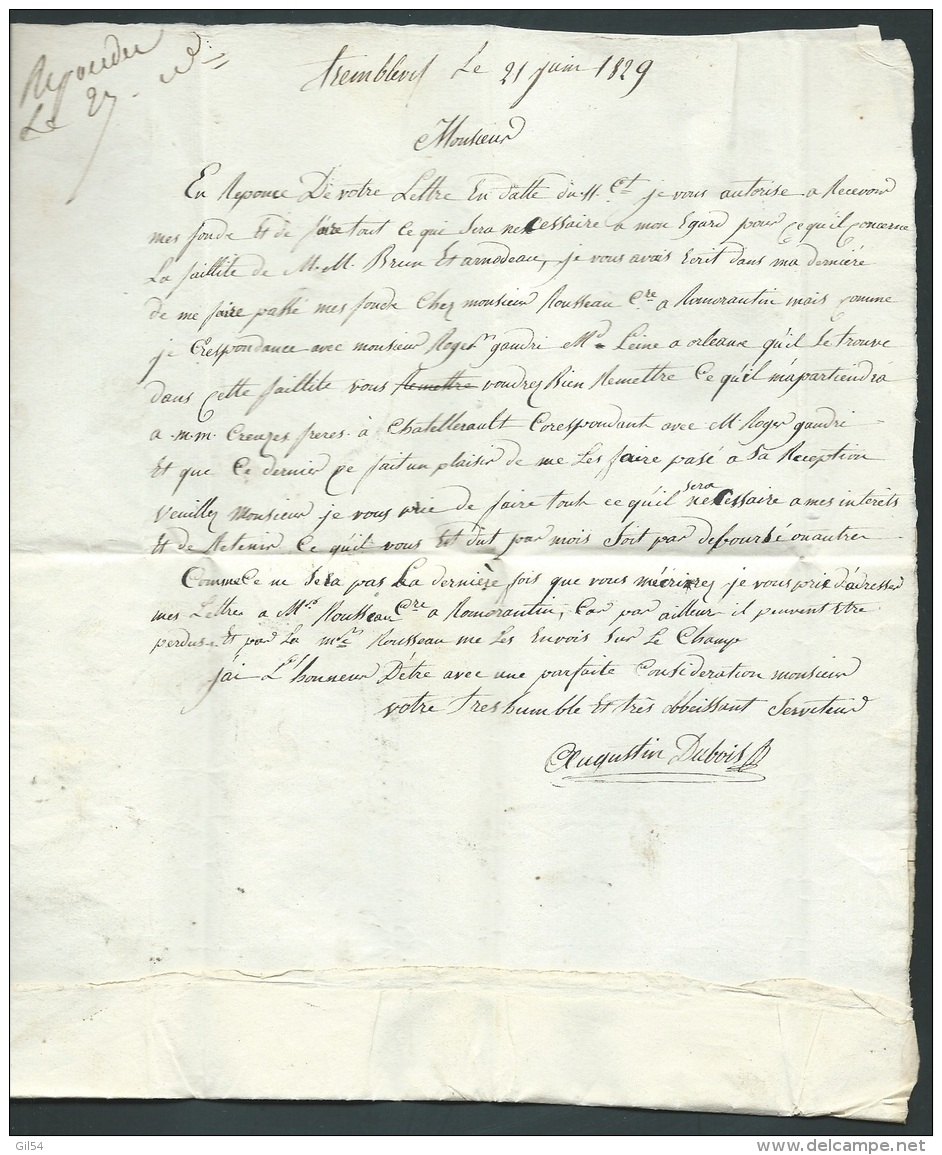 Repondu
Le 27 dº
tremblevif Le 21 juin 1829
Monsieur
En Reponce De votre Lettre En datte du 11 Ct. je vous autorise a Recevoir
mes fonds Et de faire tout ce qui Sera necessaire a mon Egard pour ce qu'il concerne
La faillite de M.M. Brun Et arnodeau, je vous avais Ecrit dans ma derniere
de me faire passé mes fonds Chez monsieur Rousseau Cre a Romorantin mais comme
je Crespondance avec monsieur Roger gaudri Md Leine a orleans qu'il Se trouve
dans cette faillite vous Remettre voudrez Bien Remettre Ce qu'il m'apartiendra
a m.m. Creuzes freres a Chatellerault Corespondant avec Mr Roger gaudri
Et que Ce dernier ce fait un plaisir de me Les faire pasé a Sa Reception
Veuillez Monsieur je vous prie de faire tout ce qu'il sera necessaire a mes interets
Et de Retenir Ce qu'il vous Est dut par mois Soit par deboursé ou autre
Comme Ce ne Sera pas La derniere fois que vous m'écrirez je vous prie d'adresser
mes Lettres a Mr Rousseau Cre a Romorantin, Car par ailleur il peuvent Etre
perdus. Et par La Rousseau me Les Envois Sur Le Champ
j'ai L'honneur D'être avec une parfaite Consideration monsieur
votre tres humble Et très obbeissant Serviteur
Augustin Dubois
Gil54
www.delcampe.net